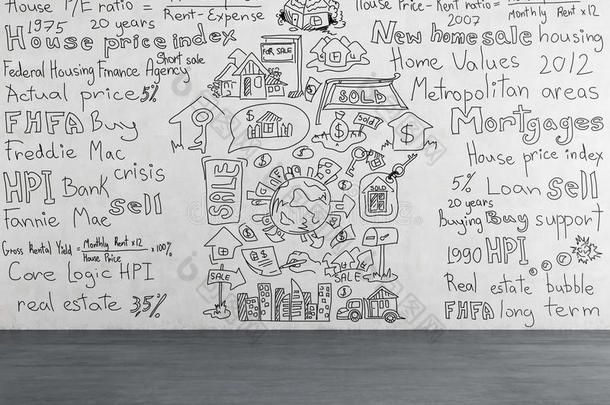 House P/E ratio =
Rent-Expense
1975 20 years
House price index
Short sale
Federal Housing Finance Agency
Actual price 5%
FHFA Buy
Freddie Mac
crisis
HPI Bank
sell
Fannie Mae
Gross Rental Yield = Monthly Rent x12 x 100%
House Price
Core Logic HPI
real estate 3,5%
FOR SALE
SOLD
Sold!
SALE
SOLD
SALE
SALE
House Price - Rent ratio =
Monthly Rent x12
2007
New home sale housing
Home Values 2012
Metropolitan areas
Mortgages
House price index
5% Loan sell
20 years
Buying Buy support
1990 HPI
Real estate bubble
FHFA long term